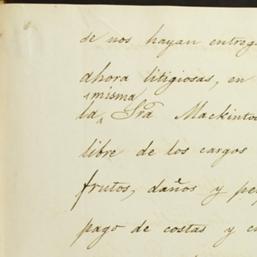 de nos hayan entreg
ahora litigiosas, en
misma
la, Sra Mackinto
libre de los cargos
frutos, daños y pe
pago de costas y